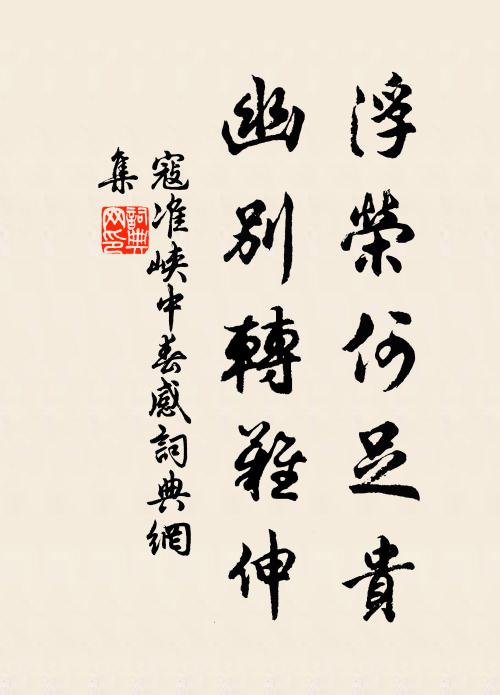 浮榮何足貴
幽別轉難伸
寇准峽中春感詞典網
集
詞典
网印